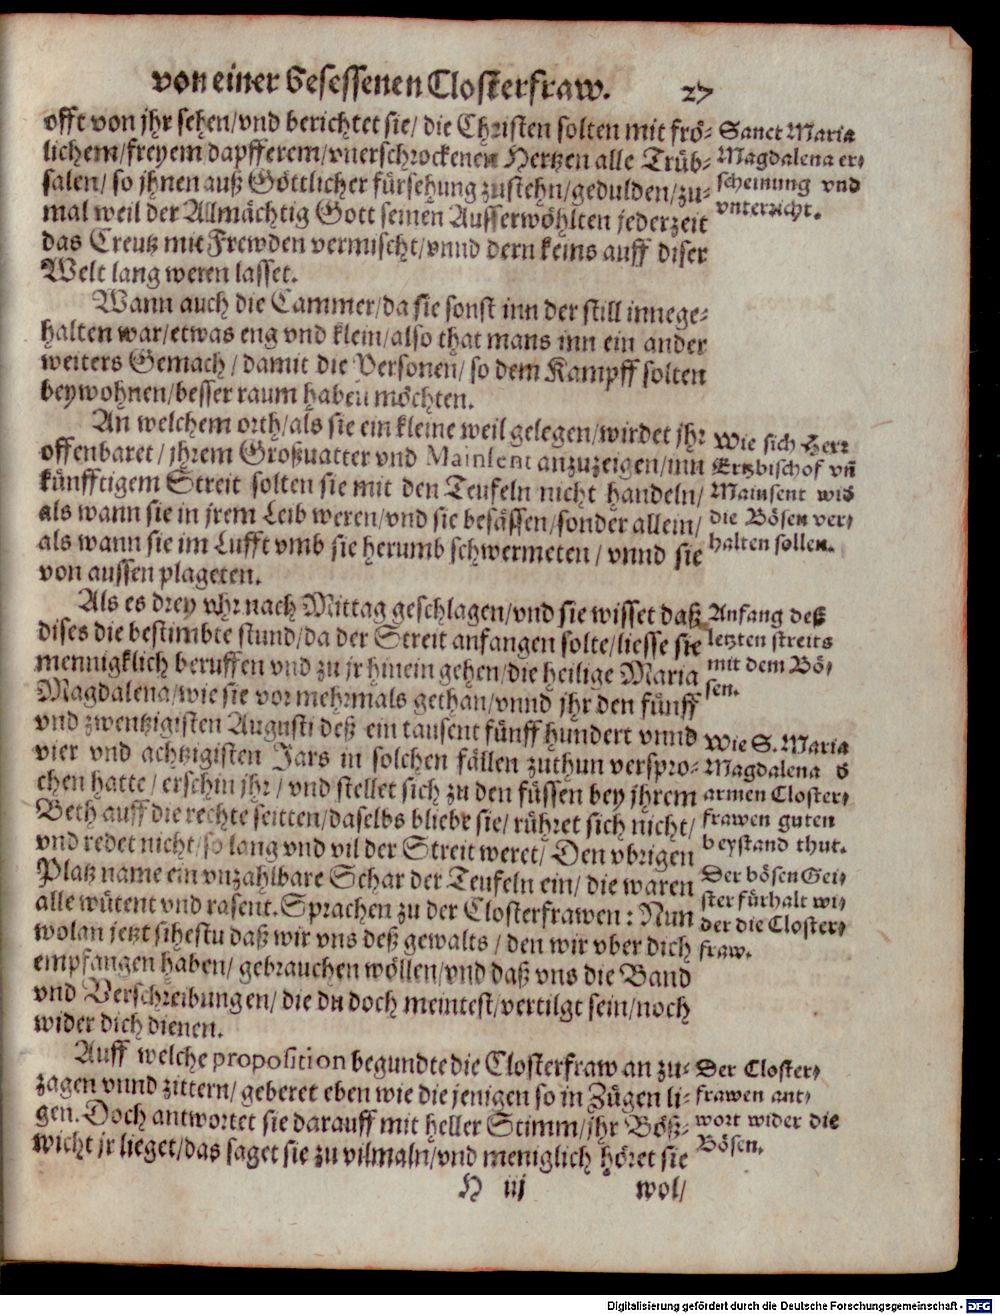 von einer Besessenen Closterfraw. 27
offt von jhr sehen/vnd berichtet sie/ die Christen solten mit frö-
lichem/freyem dapfferem/vnerschrockenen Hertzen alle Trüb-
salen/ so jhnen auß Göttlicher fürsehung zustehn/gedulden/zu-
mal weil der Allmächtig Gott seinen Ausserwöhlten jederzeit
das Creutz mit Frewden vermischt/vnnd dern keins auff diser
Welt lang weren lasset.
Sanct Maria
Magdalena er-
scheinung vnd
vnterricht.
Wann auch die Cammer/da sie sonst inn der still innege-
halten war/etwas eng vnd klein/also that mans inn ein ander
weiters Gemach/ damit die Personen/ so dem Kampff solten
beywohnen/besser raum haben möchten.
An welchem orth/als sie ein kleine weil gelegen/wirdet jhr
offenbaret/ jhrem Großuatter vnd Mainsent anzuzeigen/inn
künfftigem Streit solten sie mit den Teufeln nicht handeln/
als wann sie in jrem Leib weren/vnd sie besässen/sonder allein/
als wann sie im Lufft vmb sie herumb schwermeten/ vnnd sie
von aussen plageten.
Wie sich Herr
Ertzbischof vñ
Mainsent wid
die Bösen ver-
halten sollen.
Als es drey vhr nach Mittag geschlagen/vnd sie wisset daß
dises die bestimbte stund/da der Streit anfangen solte/liesse sie
mennigklich beruffen vnd zu jr hinein gehen/die heilige Maria
Magdalena/wie sie vor mehrmals gethan/vnnd jhr den fünff
vnd zwentzigisten Augusti deß ein tausent fünff hundert vnnd
vier vnd achtzigisten Jars in solchen fällen zuthun verspro-
chen hatte/ erschin jhr/ vnd stellet sich zu den füssen bey jhrem
Beth auff die rechte seitten/daselbs bliebe sie/ rühret sich nicht/
vnd redet nicht/so lang vnd vil der Streit weret/ Den vbrigen
Platz name ein vnzahlbare Schar der Teufeln ein/ die waren
alle wütent vnd rasent. Sprachen zu der Closterfrawen: Nun
wolan jetzt sihestu daß wir vns deß gewalts/ den wir vber dich
empfangen haben/ gebrauchen wöllen/vnd daß vns die Band
vnd Verschreibungen/ die du doch meintest/vertilgt sein/noch
wider dich dienen.
Anfang deß
letzten streits
mit dem Bö-
sen.
Wie S. Maria
Magdalena d
armen Closter-
frawen guten
beystand thut.
Der bösen Gei-
ster fürhalt wi-
der die Closter-
fraw.
Auff welche proposition begundte die Closterfraw an zu-
zagen vnnd zittern/ geberet eben wie die jenigen so in Zügen li-
gen. Doch antwortet sie darauff mit heller Stimm/jhr Böß-
wicht jr lieget/das saget sie zu vilmaln/vnd meniglich höret sie
Der Closter-
frawen ant-
wort wider die
Bösen.
H iij wol/
Digitalisierung gefördert durch die Deutsche Forschungsgemeinschaft - DFG